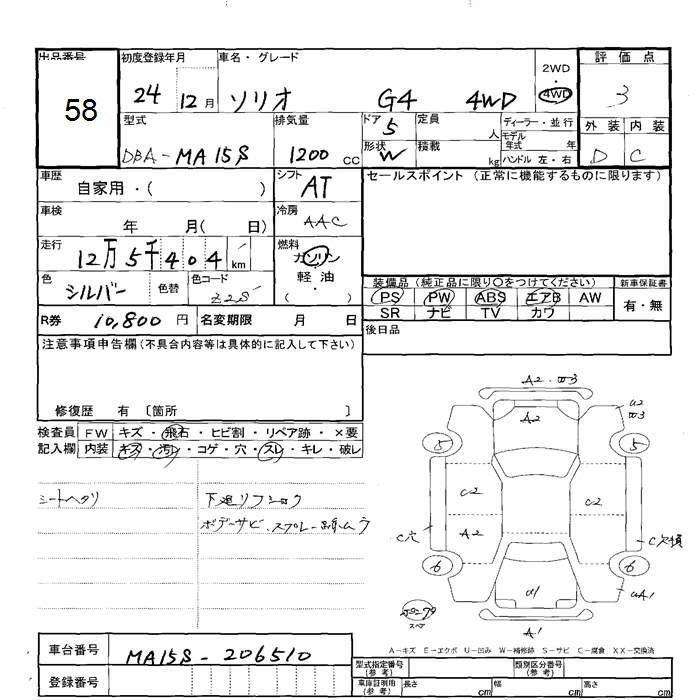 出品番号
58
初度登録年月
24 12月
車名・グレード
ソリオ G4 4WD
2WD
・
4WD
評価点
3
型式
DBA-MA15S
排気量
1200 cc
ドア
5
形状
W
定員
人
積載
kg
ディーラー・並行
モデル年式 年
ハンドル 左・右
外装 内装
D C
車歴
自家用・( )
シフト
AT
セールスポイント (正常に機能するものに限ります)
車検
年 月( 日)
冷房
AAC
走行
12万5千404 km
燃料
ガソリン
軽・油
( )
色
シルバー
色替
色コード
Z2S
装備品 (純正品に限り〇をつけてください)
PS PW ABS エアB AW
SR ナビ TV カワ
新車保証書
有・無
R券 10,800円
名変期限 月 日
後日品
注意事項申告欄(不具合内容等は具体的に記入して下さい)
修復歴 有 〔箇所 〕
検査員記入欄
FW キズ・飛石・ヒビ割・リペア跡・×要
内装 キズ・汚レ・コゲ・穴・スレ・キレ・破レ
シートヘタリ
下廻リフショク
ボデーサビ・スプレー
A2・W3
A2
U2
W3
5
5
C2
C2
A2
C穴
C欠損
6
6
U1
UA1
スペア
A1
A-キズ E-エクボ U-凹み W-補修跡 S-サビ C-腐食 XX-交換済
車台番号
MA15S-206510
登録番号
型式指定番号
(参考)
類別区分番号
(参考)
車庫証明用
(参考)
長さ cm
幅 cm
高さ cm